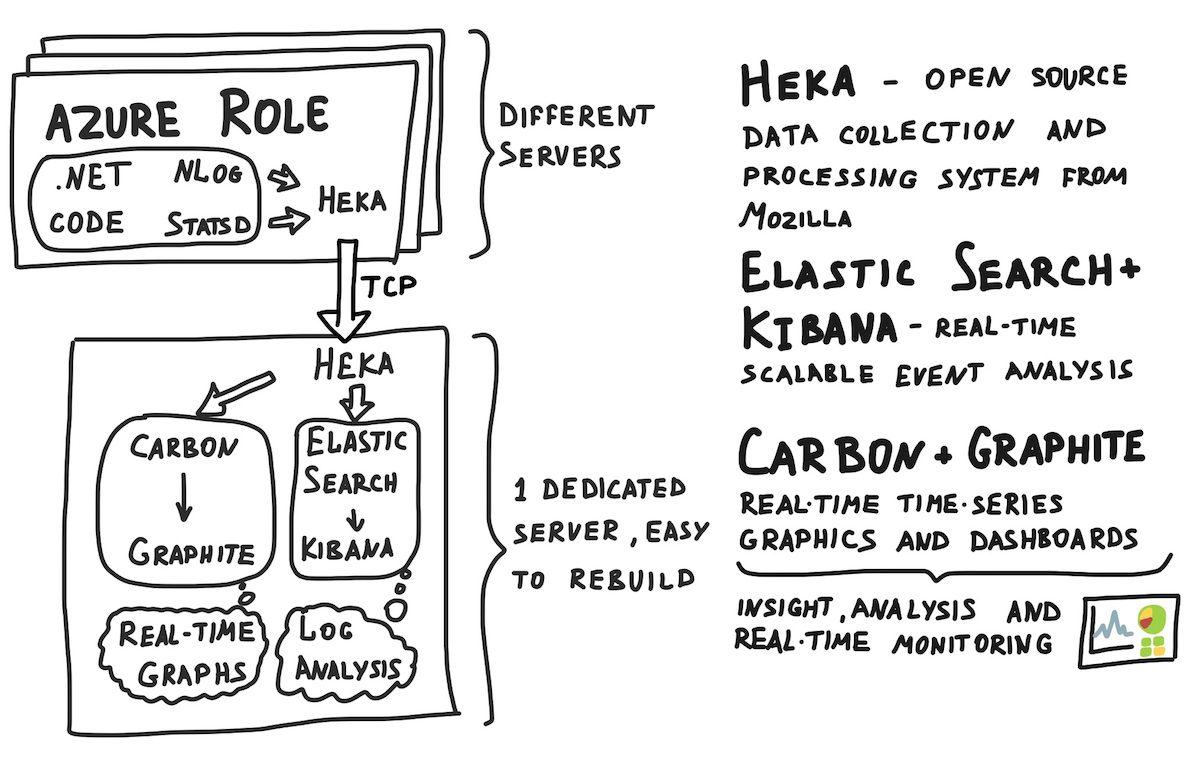 AZURE ROLE
.NET NLOG
CODE STATSD
HEKA
DIFFERENT
SERVERS
TCP
HEKA
CARBON
GRAPHITE
ELASTIC
SEARCH
KIBANA
REAL-TIME
GRAPHS
LOG
ANALYSIS
1 DEDICATED
SERVER, EASY
TO REBUILD
HEKA - OPEN SOURCE
DATA COLLECTION AND
PROCESSING SYSTEM FROM
MOZILLA
ELASTIC SEARCH+
KIBANA - REAL-TIME
SCALABLE EVENT ANALYSIS
CARBON + GRAPHITE
REAL-TIME TIME-SERIES
GRAPHICS AND DASHBOARDS
INSIGHT, ANALYSIS AND
REAL-TIME MONITORING